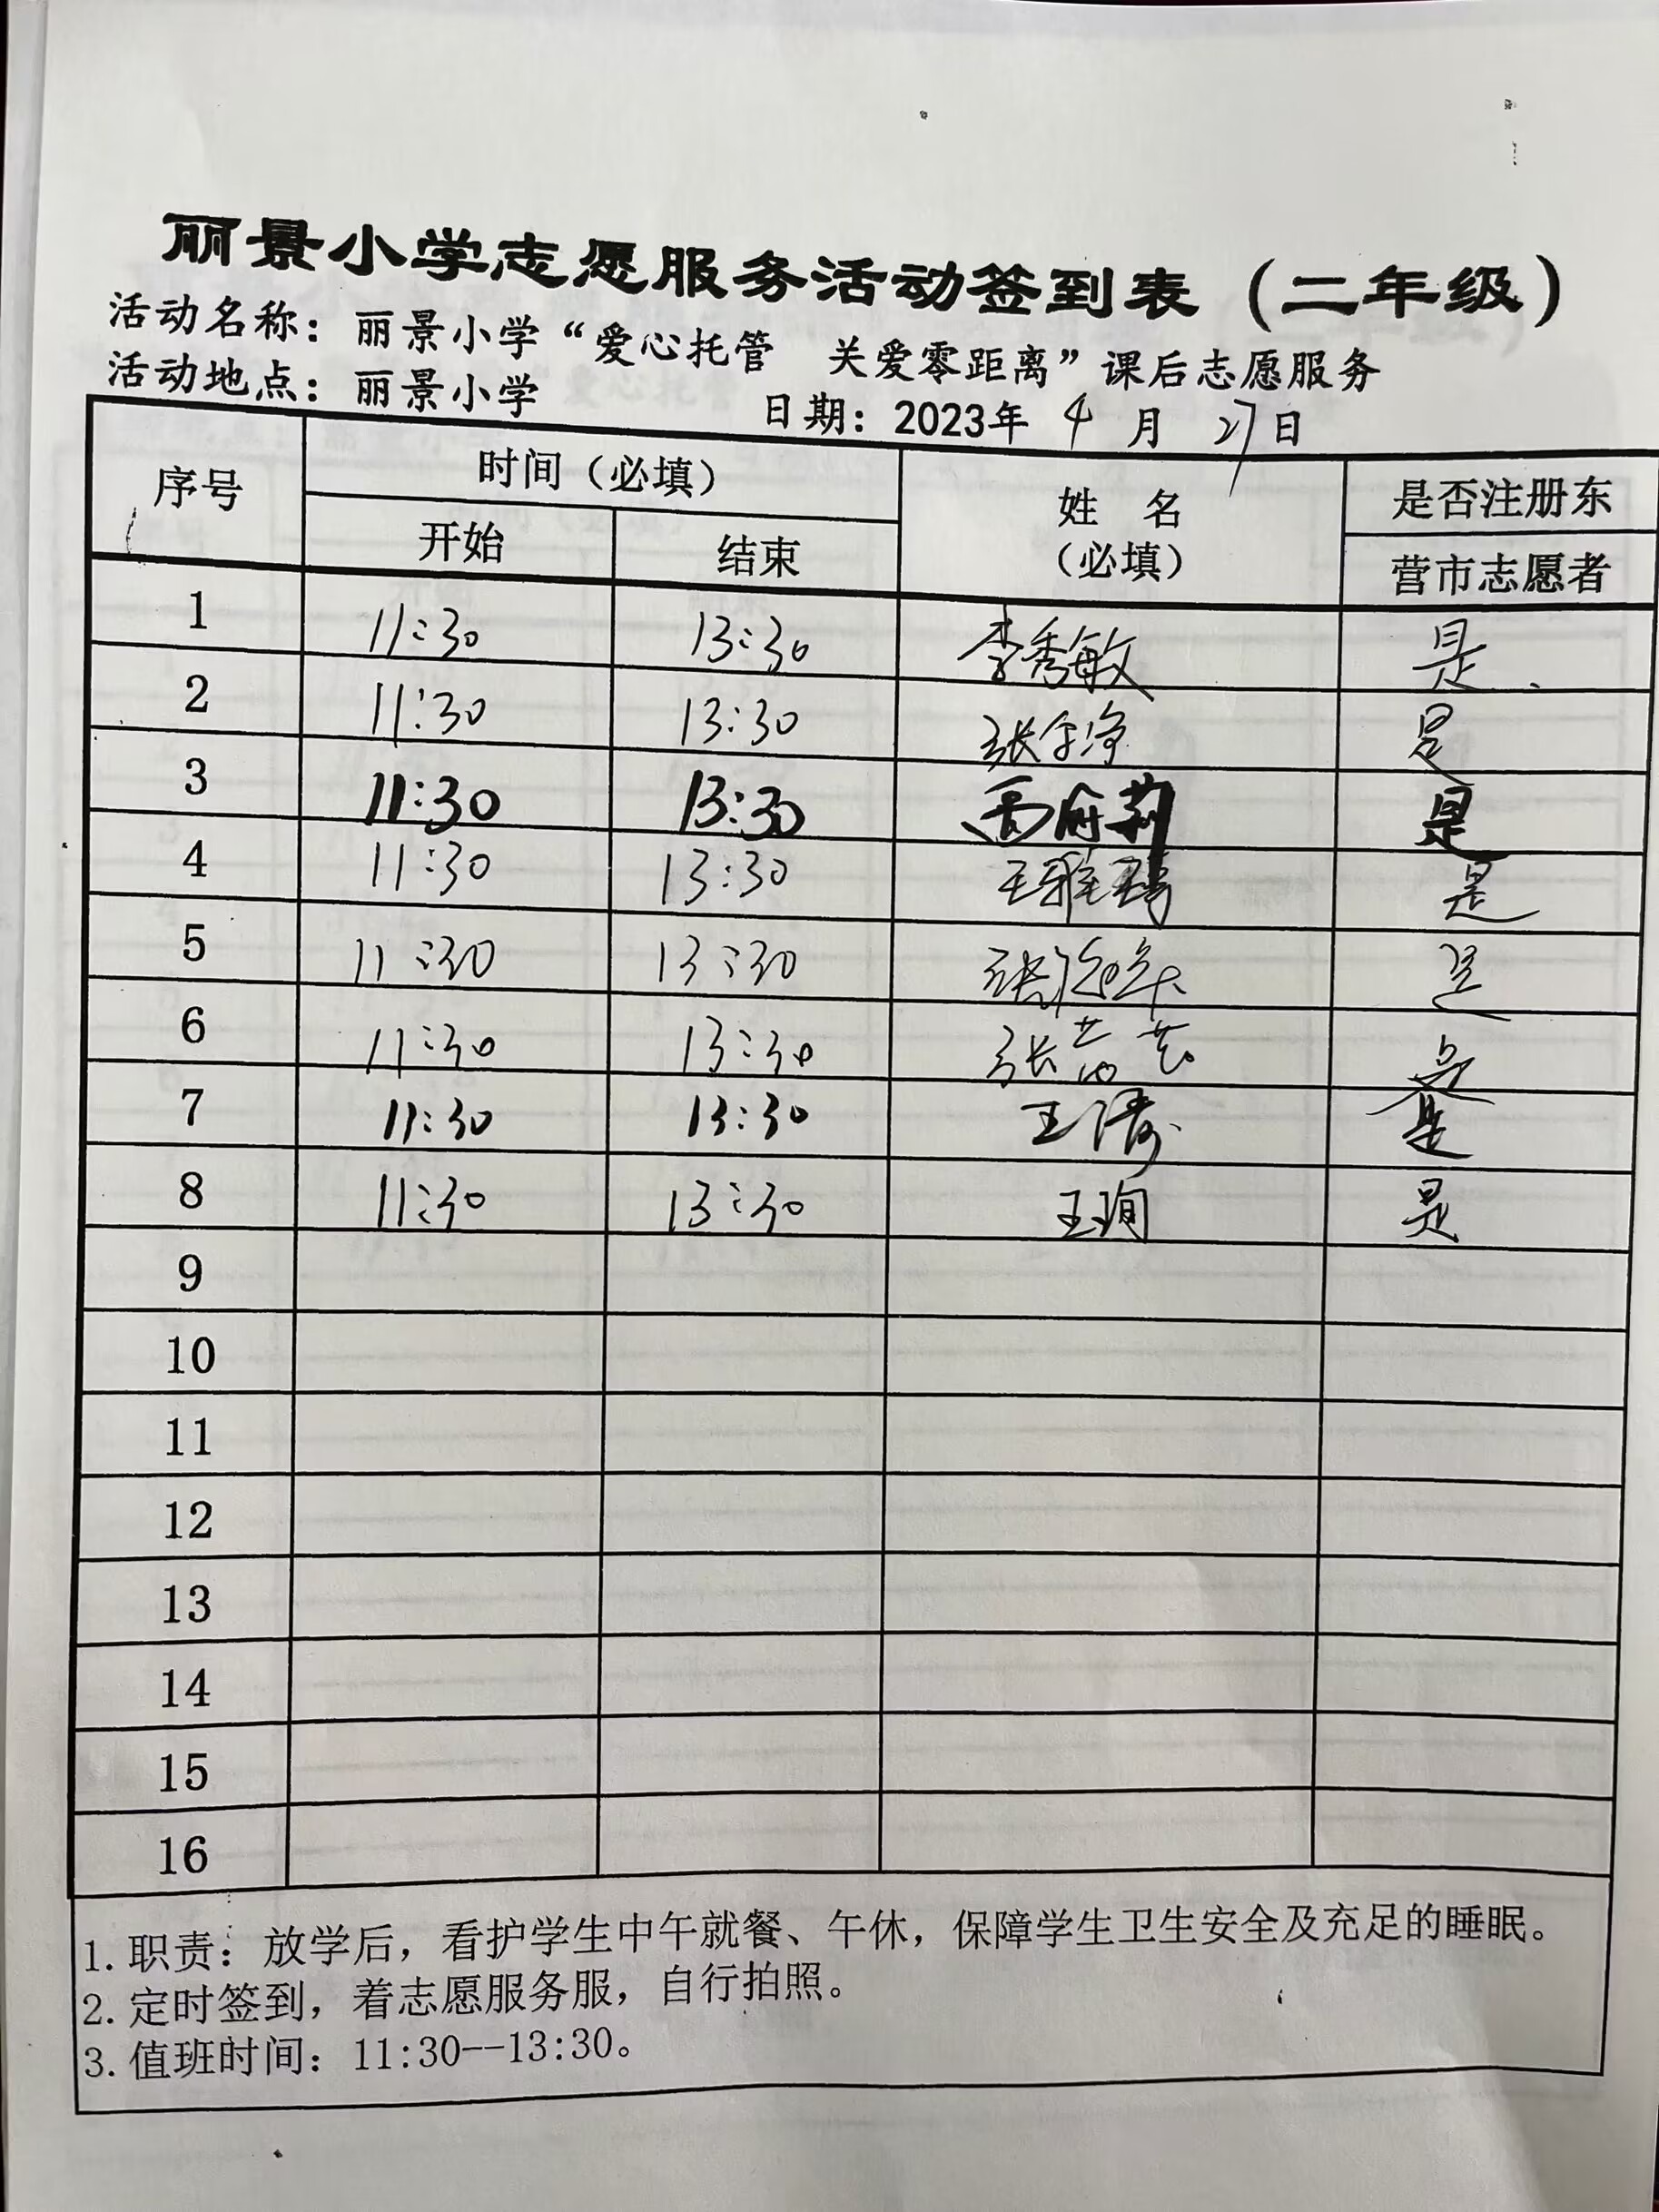 丽景小学志愿服务活动签到表（二年级）
活动名称：丽景小学“爱心托管 关爱零距离”课后志愿服务
活动地点：丽景小学 日期：2023年 4 月 27日
序号 时间（必填） 姓 名（必填） 是否注册东营市志愿者
开始 结束
1 11:30 13:30 李秀敏 是
2 11:30 13:30 张 是
3 11:30 13:30 是
4 11:30 13:30 王雅琦 是
5 11:30 13:30 张 是
6 11:30 13:30 张 是
7 11:30 13:30 王倩 是
8 11:30 13:30 王珣 是
9
10
11
12
13
14
15
16
1.职责：放学后，看护学生中午就餐、午休，保障学生卫生安全及充足的睡眠。
2.定时签到，着志愿服务服，自行拍照。
3.值班时间：11:30--13:30。